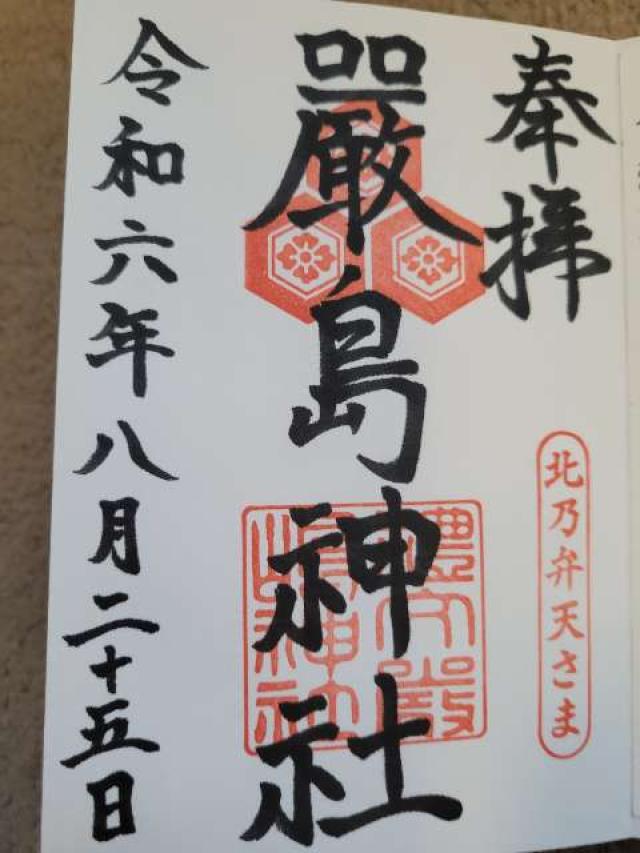 奉拝
北乃弁天さま
嚴島神社
令和六年八月二十五日